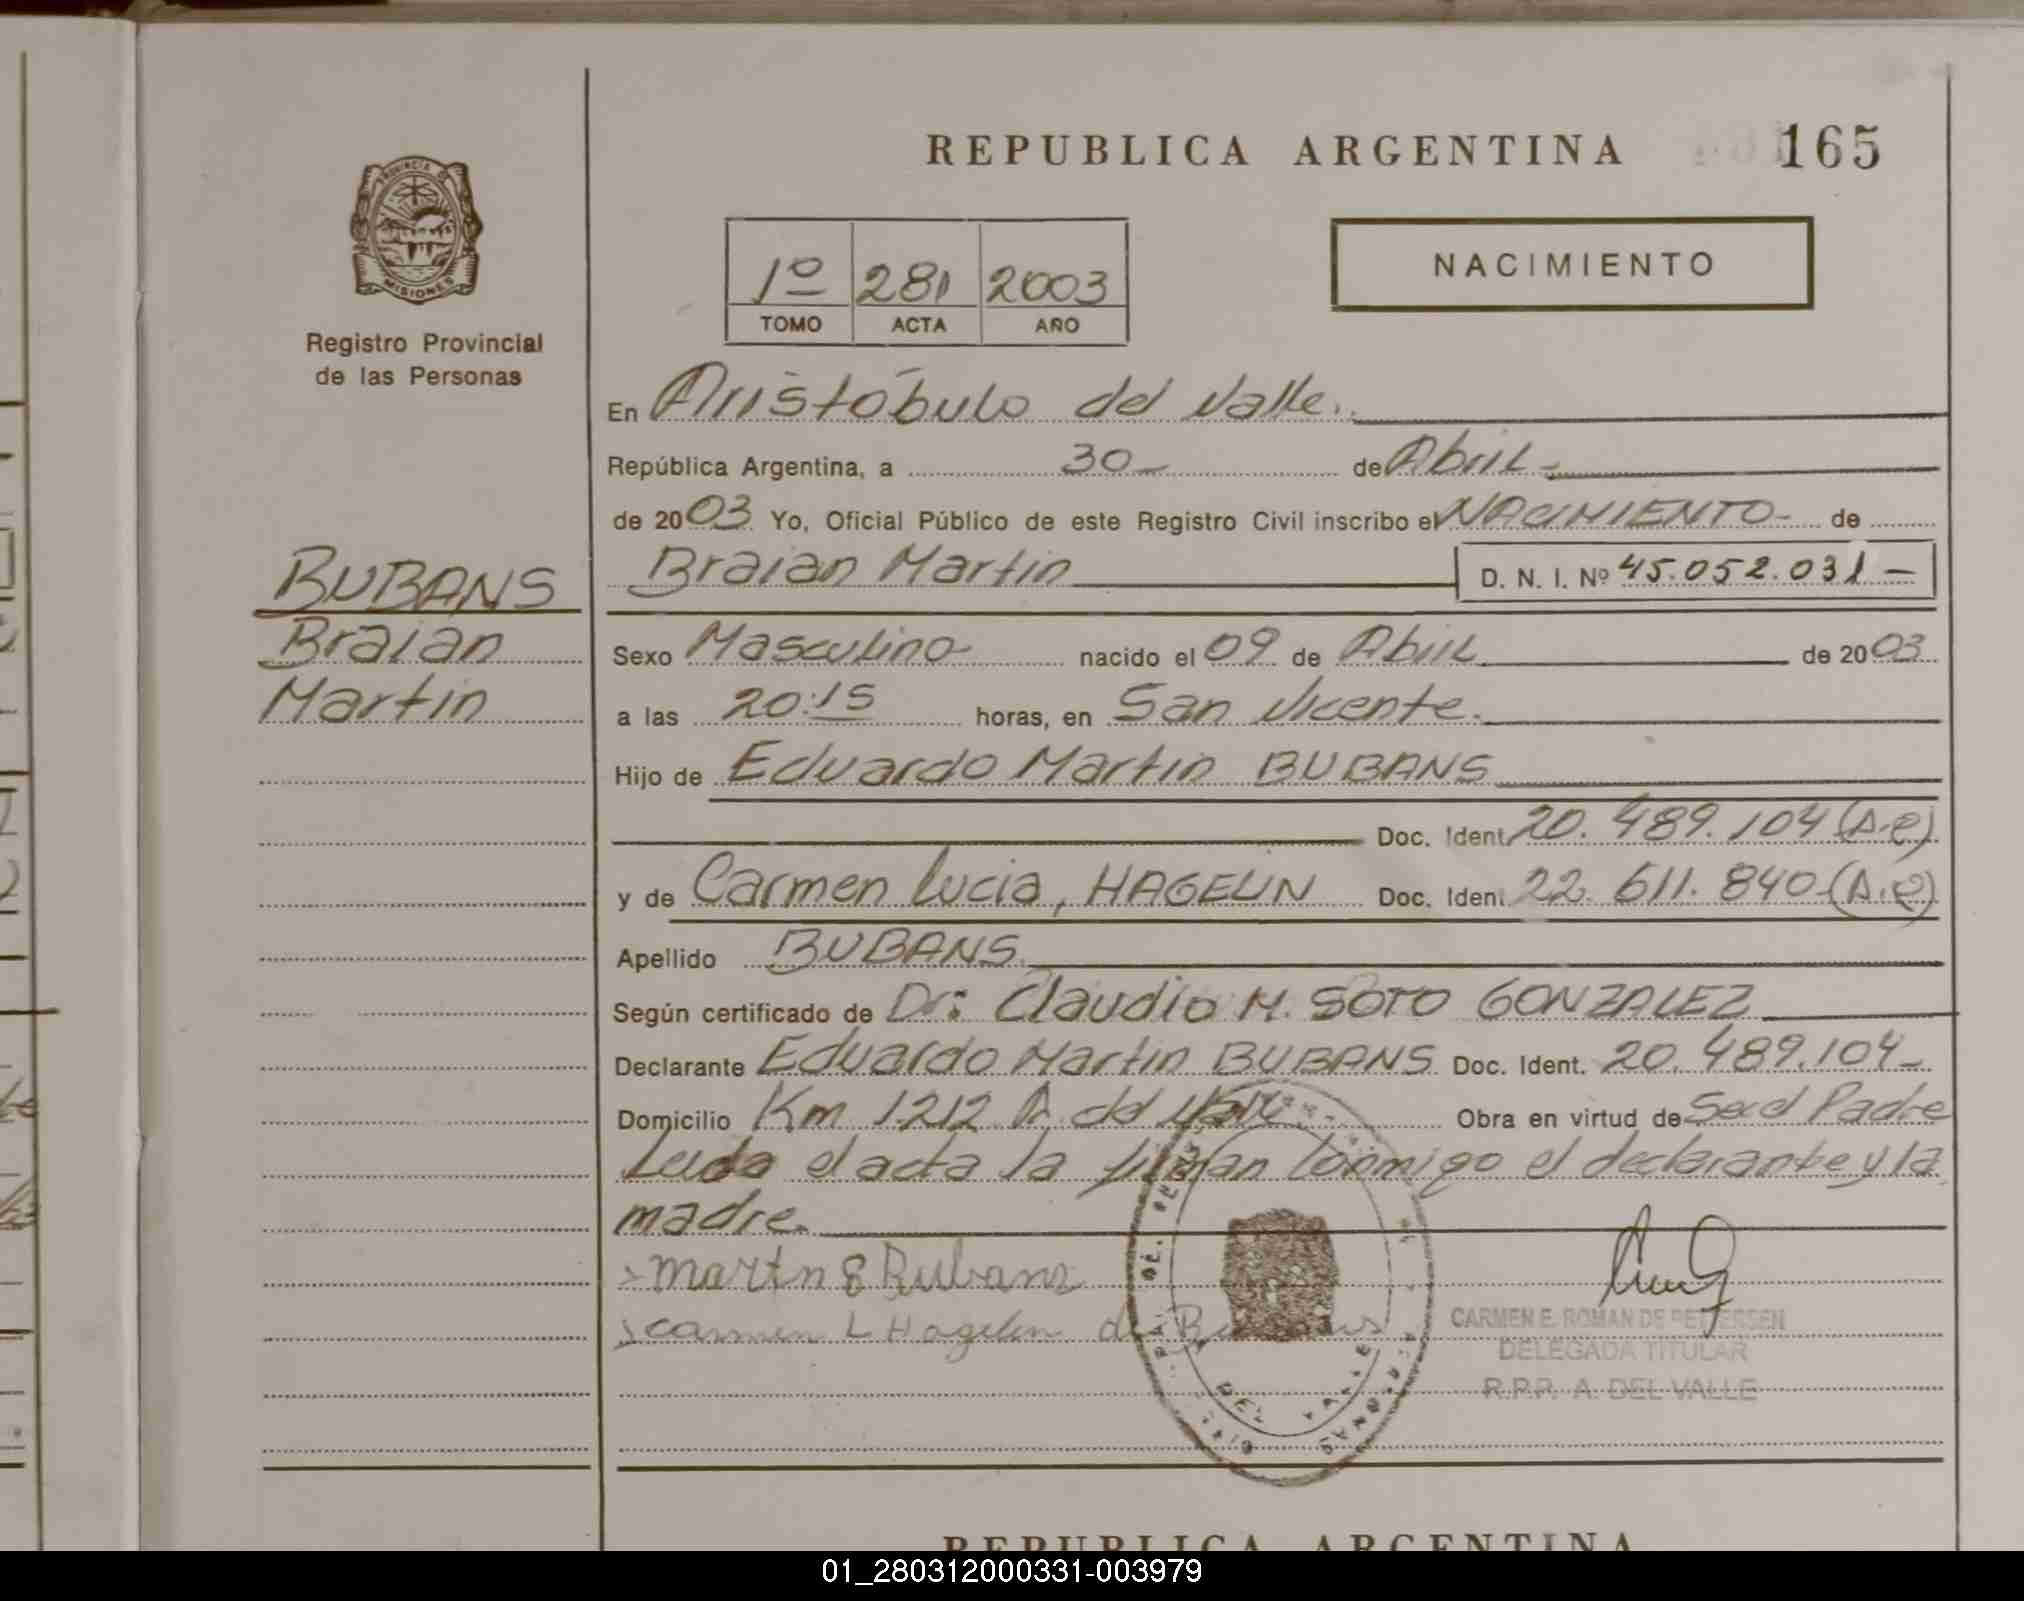 REPUBLICA ARGENTINA 165
PROVINCIA DE
MISIONES
Registro Provincial
de las Personas
1º 281 2003
TOMO ACTA AÑO
NACIMIENTO
En Aristóbulo del Valle.
República Argentina, a 30 de Abril
de 2003 Yo, Oficial Público de este Registro Civil inscribo el NACIMIENTO de
BUBANS
Braian
Martin
Braian Martin D. N. I. Nº 45.052.031
Sexo Masculino nacido el 09 de Abril de 2003
a las 20:15 horas, en San Vicente.
Hijo de Eduardo Martin BUBANS
Doc. Ident. 20.489.104 (A.e)
y de Carmen Lucia, HAGELIN Doc. Ident. 22.611.840 (A.e)
Apellido BUBANS
Según certificado de Dr: Claudio M. SOTO GONZALEZ
Declarante Eduardo Martin BUBANS Doc. Ident. 20.489.104
Domicilio Km 1.212 A. del Valle Obra en virtud de Ser el Padre
Leida el acta la firman conmigo el declarante y la
madre.
Martin E Bubans
Carmen L Hagelin de Bubans
CARMEN E. ROMAN DE PETTERSEN
DELEGADA TITULAR
R.P.P. A. DEL VALLE
DEL VALLE
REPUBLICA ARGENTINA
01_280312000331-003979